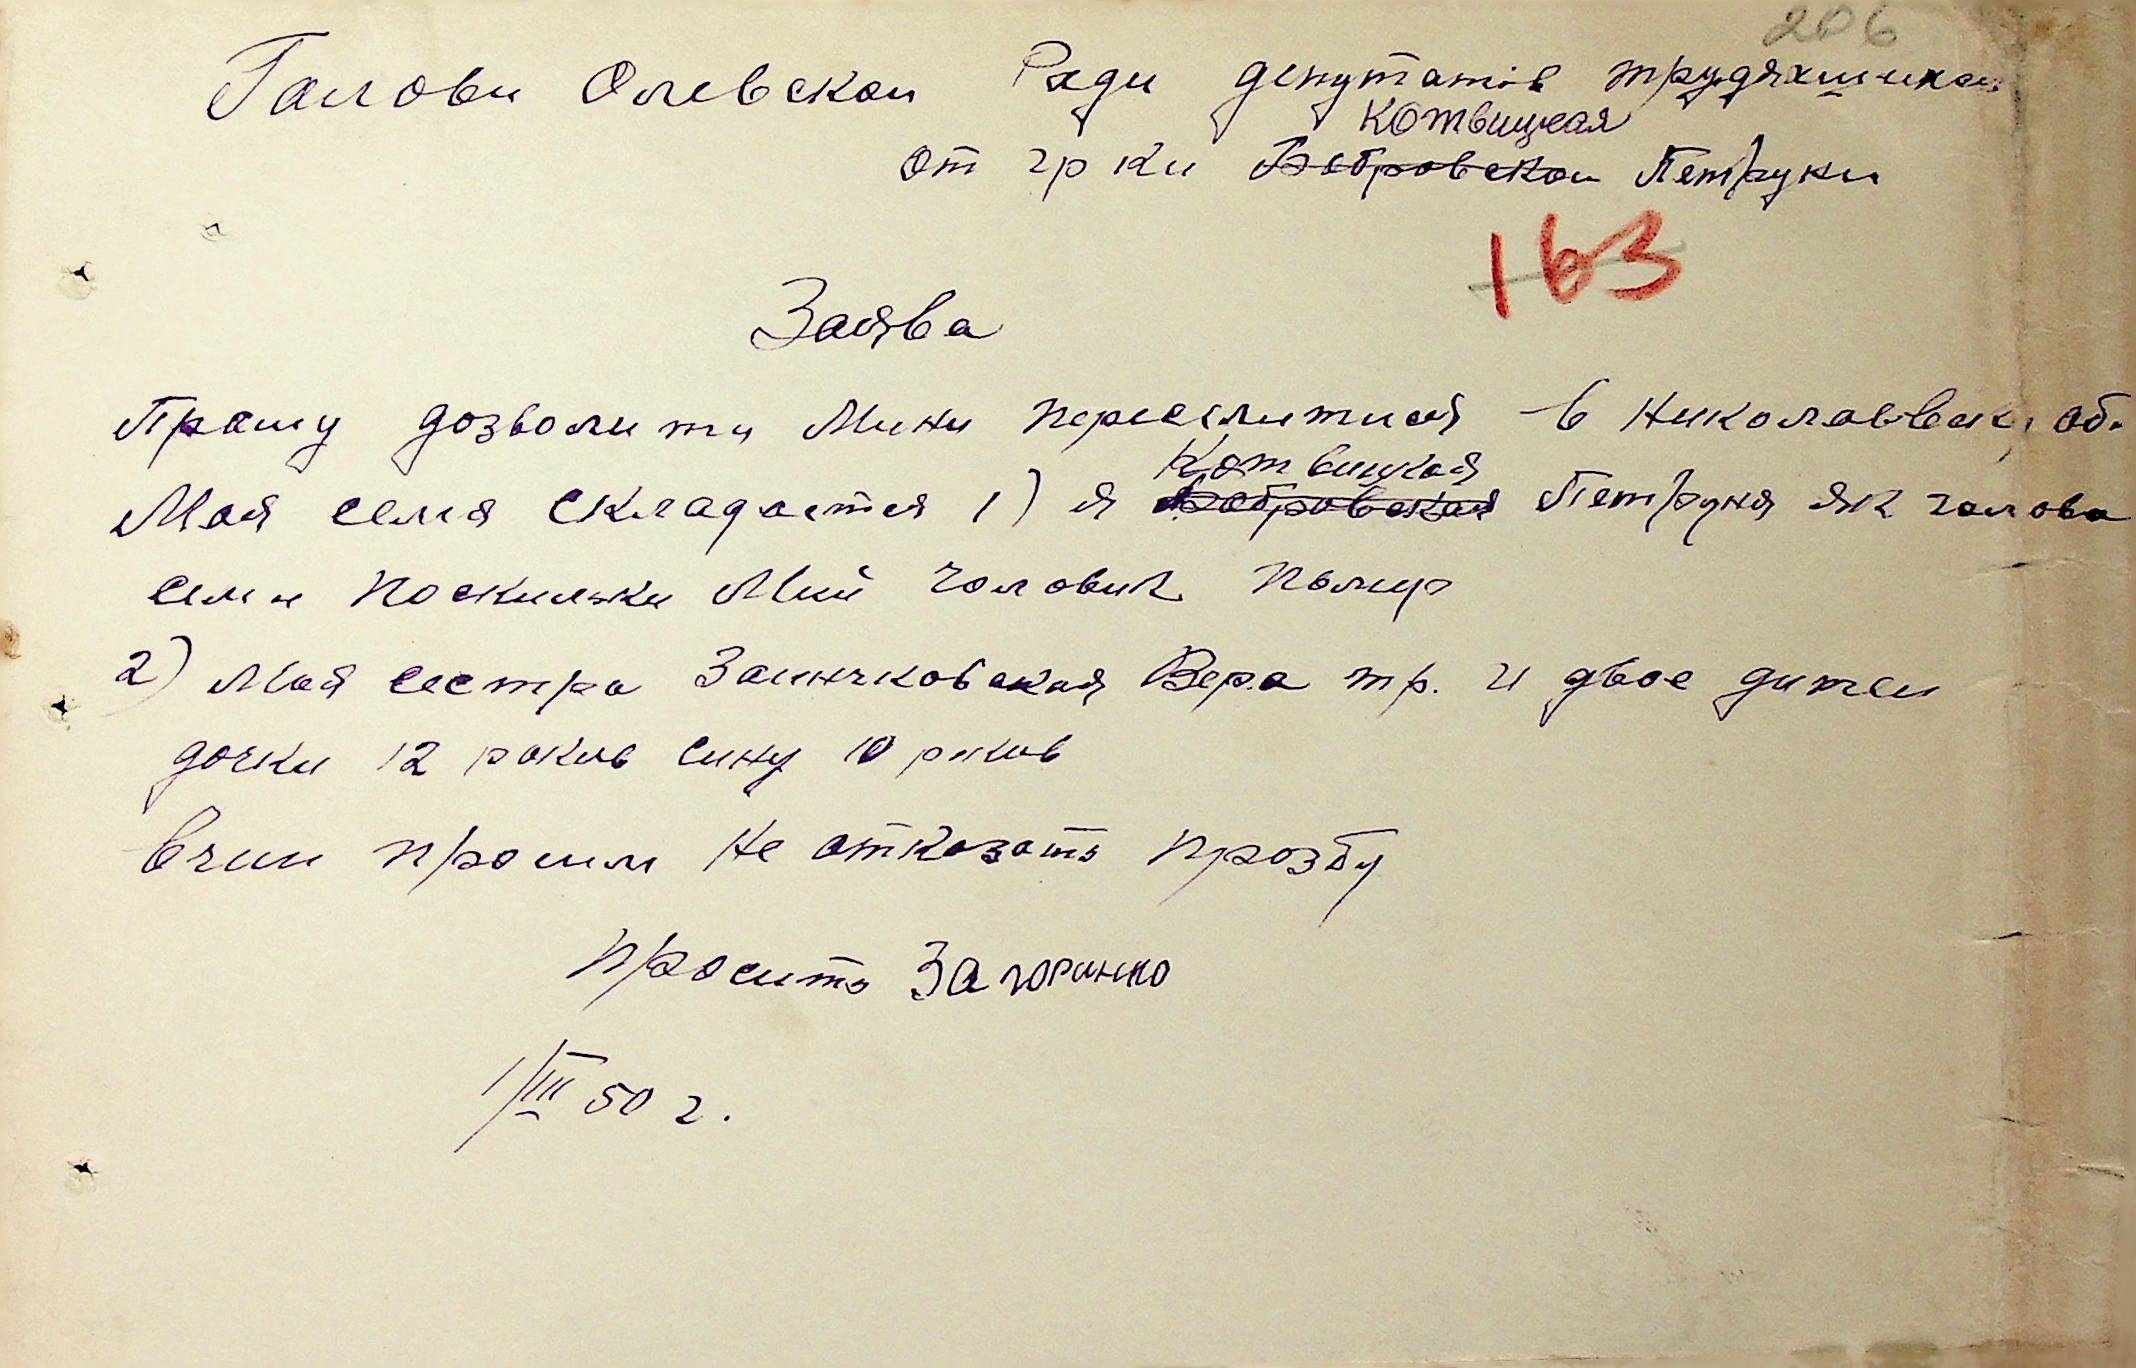 206
Галови Олевскои Ради депутатів трудяхшихся
Котвицкая
от гр ки Бобровскои Петруки
163
Заява
Прашу дозволити Мини переселитися в Николаевску об.
Котвицкая
Моя семя складается 1) я Бобровская Петруня як галова
семи поскильки Мий чоловик помер
2) Моя сестра Заинчковская Вера тр. и двое дитеи
дочки 12 рокив сину 10 рокив
в чим просим не отказать прозбу
просить Загоринко
1/III 50 г.